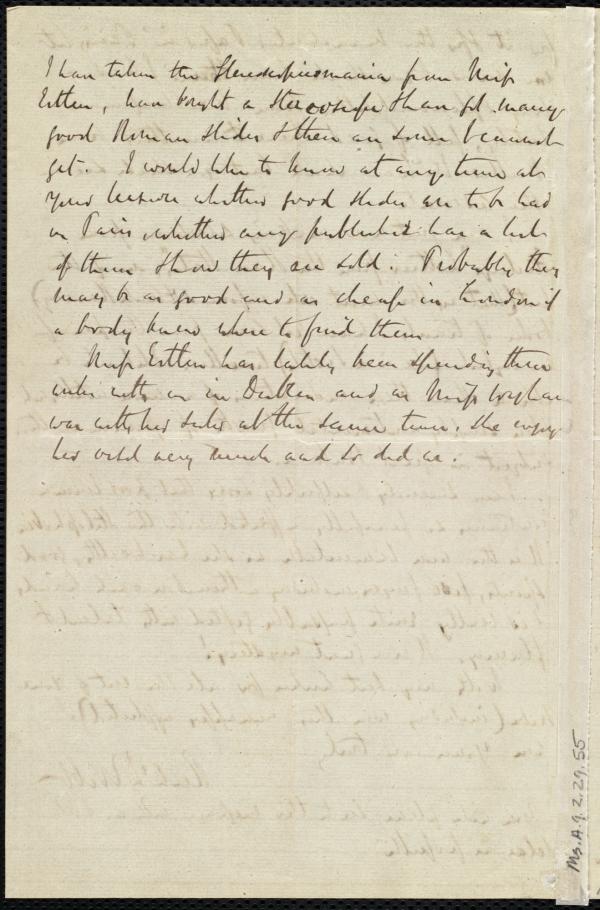 I have taken the Stereoscopicomania from Miss
Estlin, have bought a stereoscope & have got many
good Roman slides & there are some I cannot
get. I would like to know at any time at
your leisure whether good slides are to be had
in Paris, whether any publisher has a list
of them & how they are sold. Probably they
may be as good and as cheap in London if
a body knew where to find them
Miss Estlin has lately been spending three
weeks with us in Dublin and as Miss Wigham
was with her sister at the same time, she enjoyed
her visit very much and so did we.
Ms.A.9.2.29.55